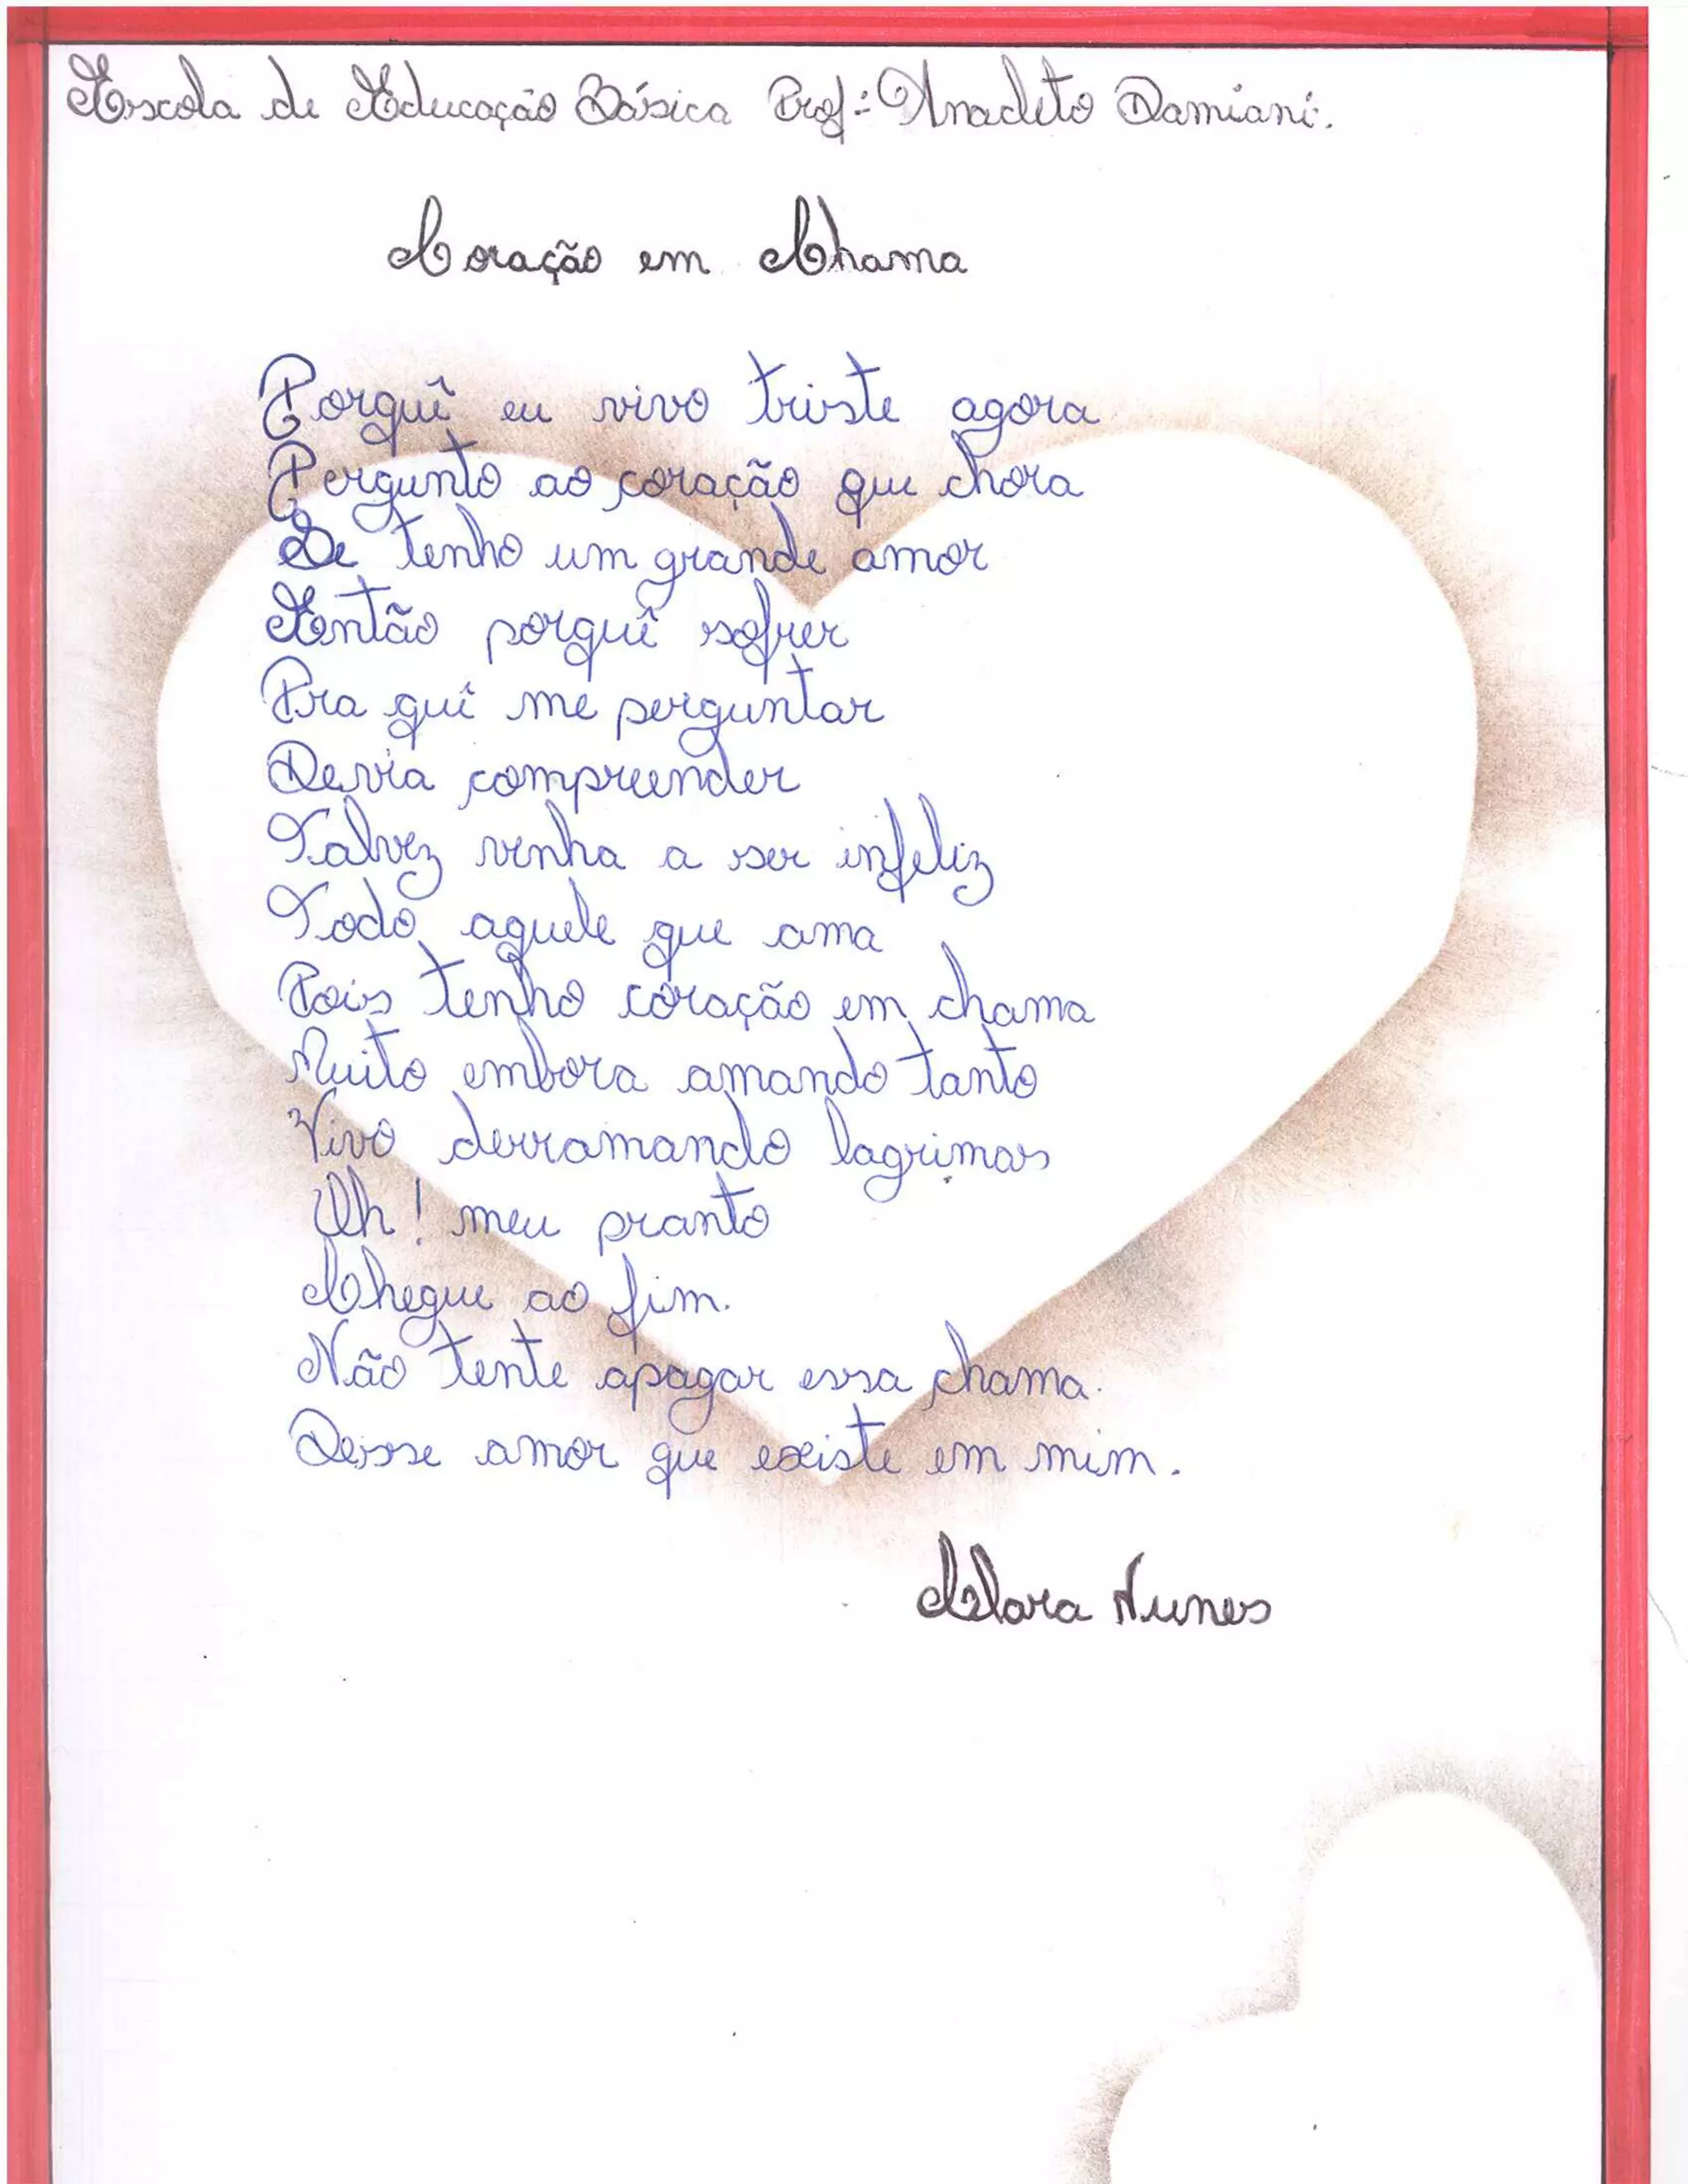 Escola de Educação Básica Prof: Anacleto Damiani.
Coração em Chama
Porquê eu vivo triste agora
Pergunto ao coração que chora
Se tenho um grande amor
Então porquê sofrer
Pra quê me perguntar
Devia compreender
Talvez venha a ser infeliz
Todo aquele que ama
Pois tenho coração em chama
Muito embora amando tanto
Vivo derramando lagrimas
Oh! meu pranto
Chegue ao fim.
Não tente apagar essa chama.
Desse amor que existe em mim.
Clara Nunes